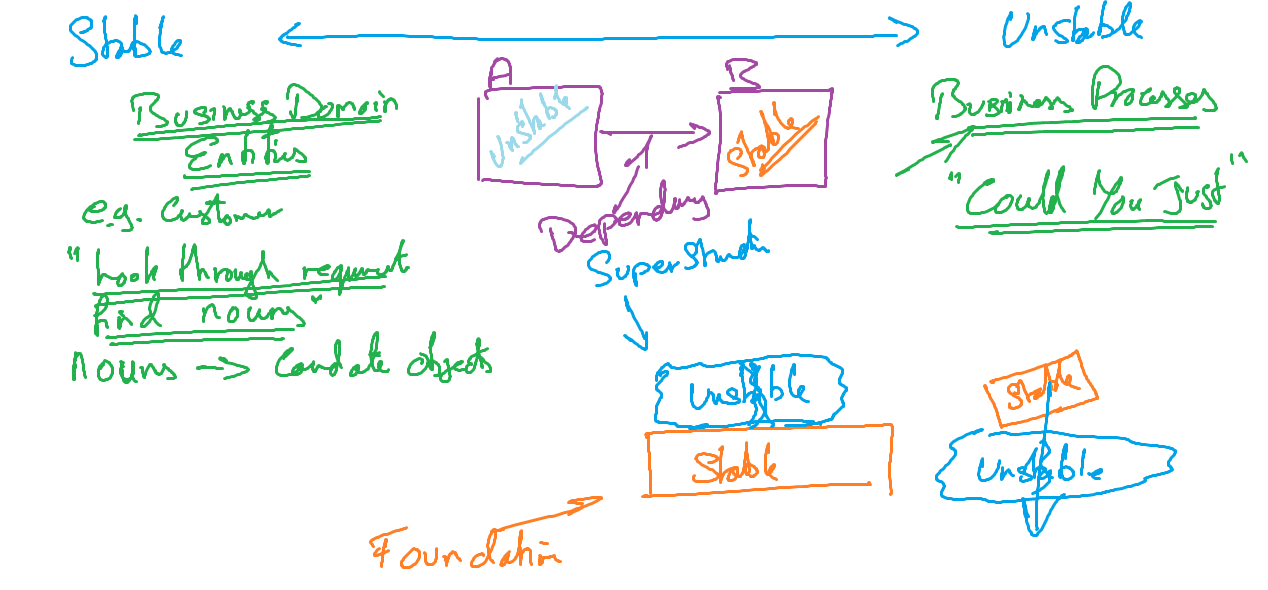 Stable
Unstable
A
B
Business Domain
Entities
e.g. Customer
"Look through requirement
find nouns"
nouns -> Candidate objects
Unstable
Stable
Dependency
Business Processes
"Could You Just"
Unstable
Stable
Stable
Unstable
Foundation